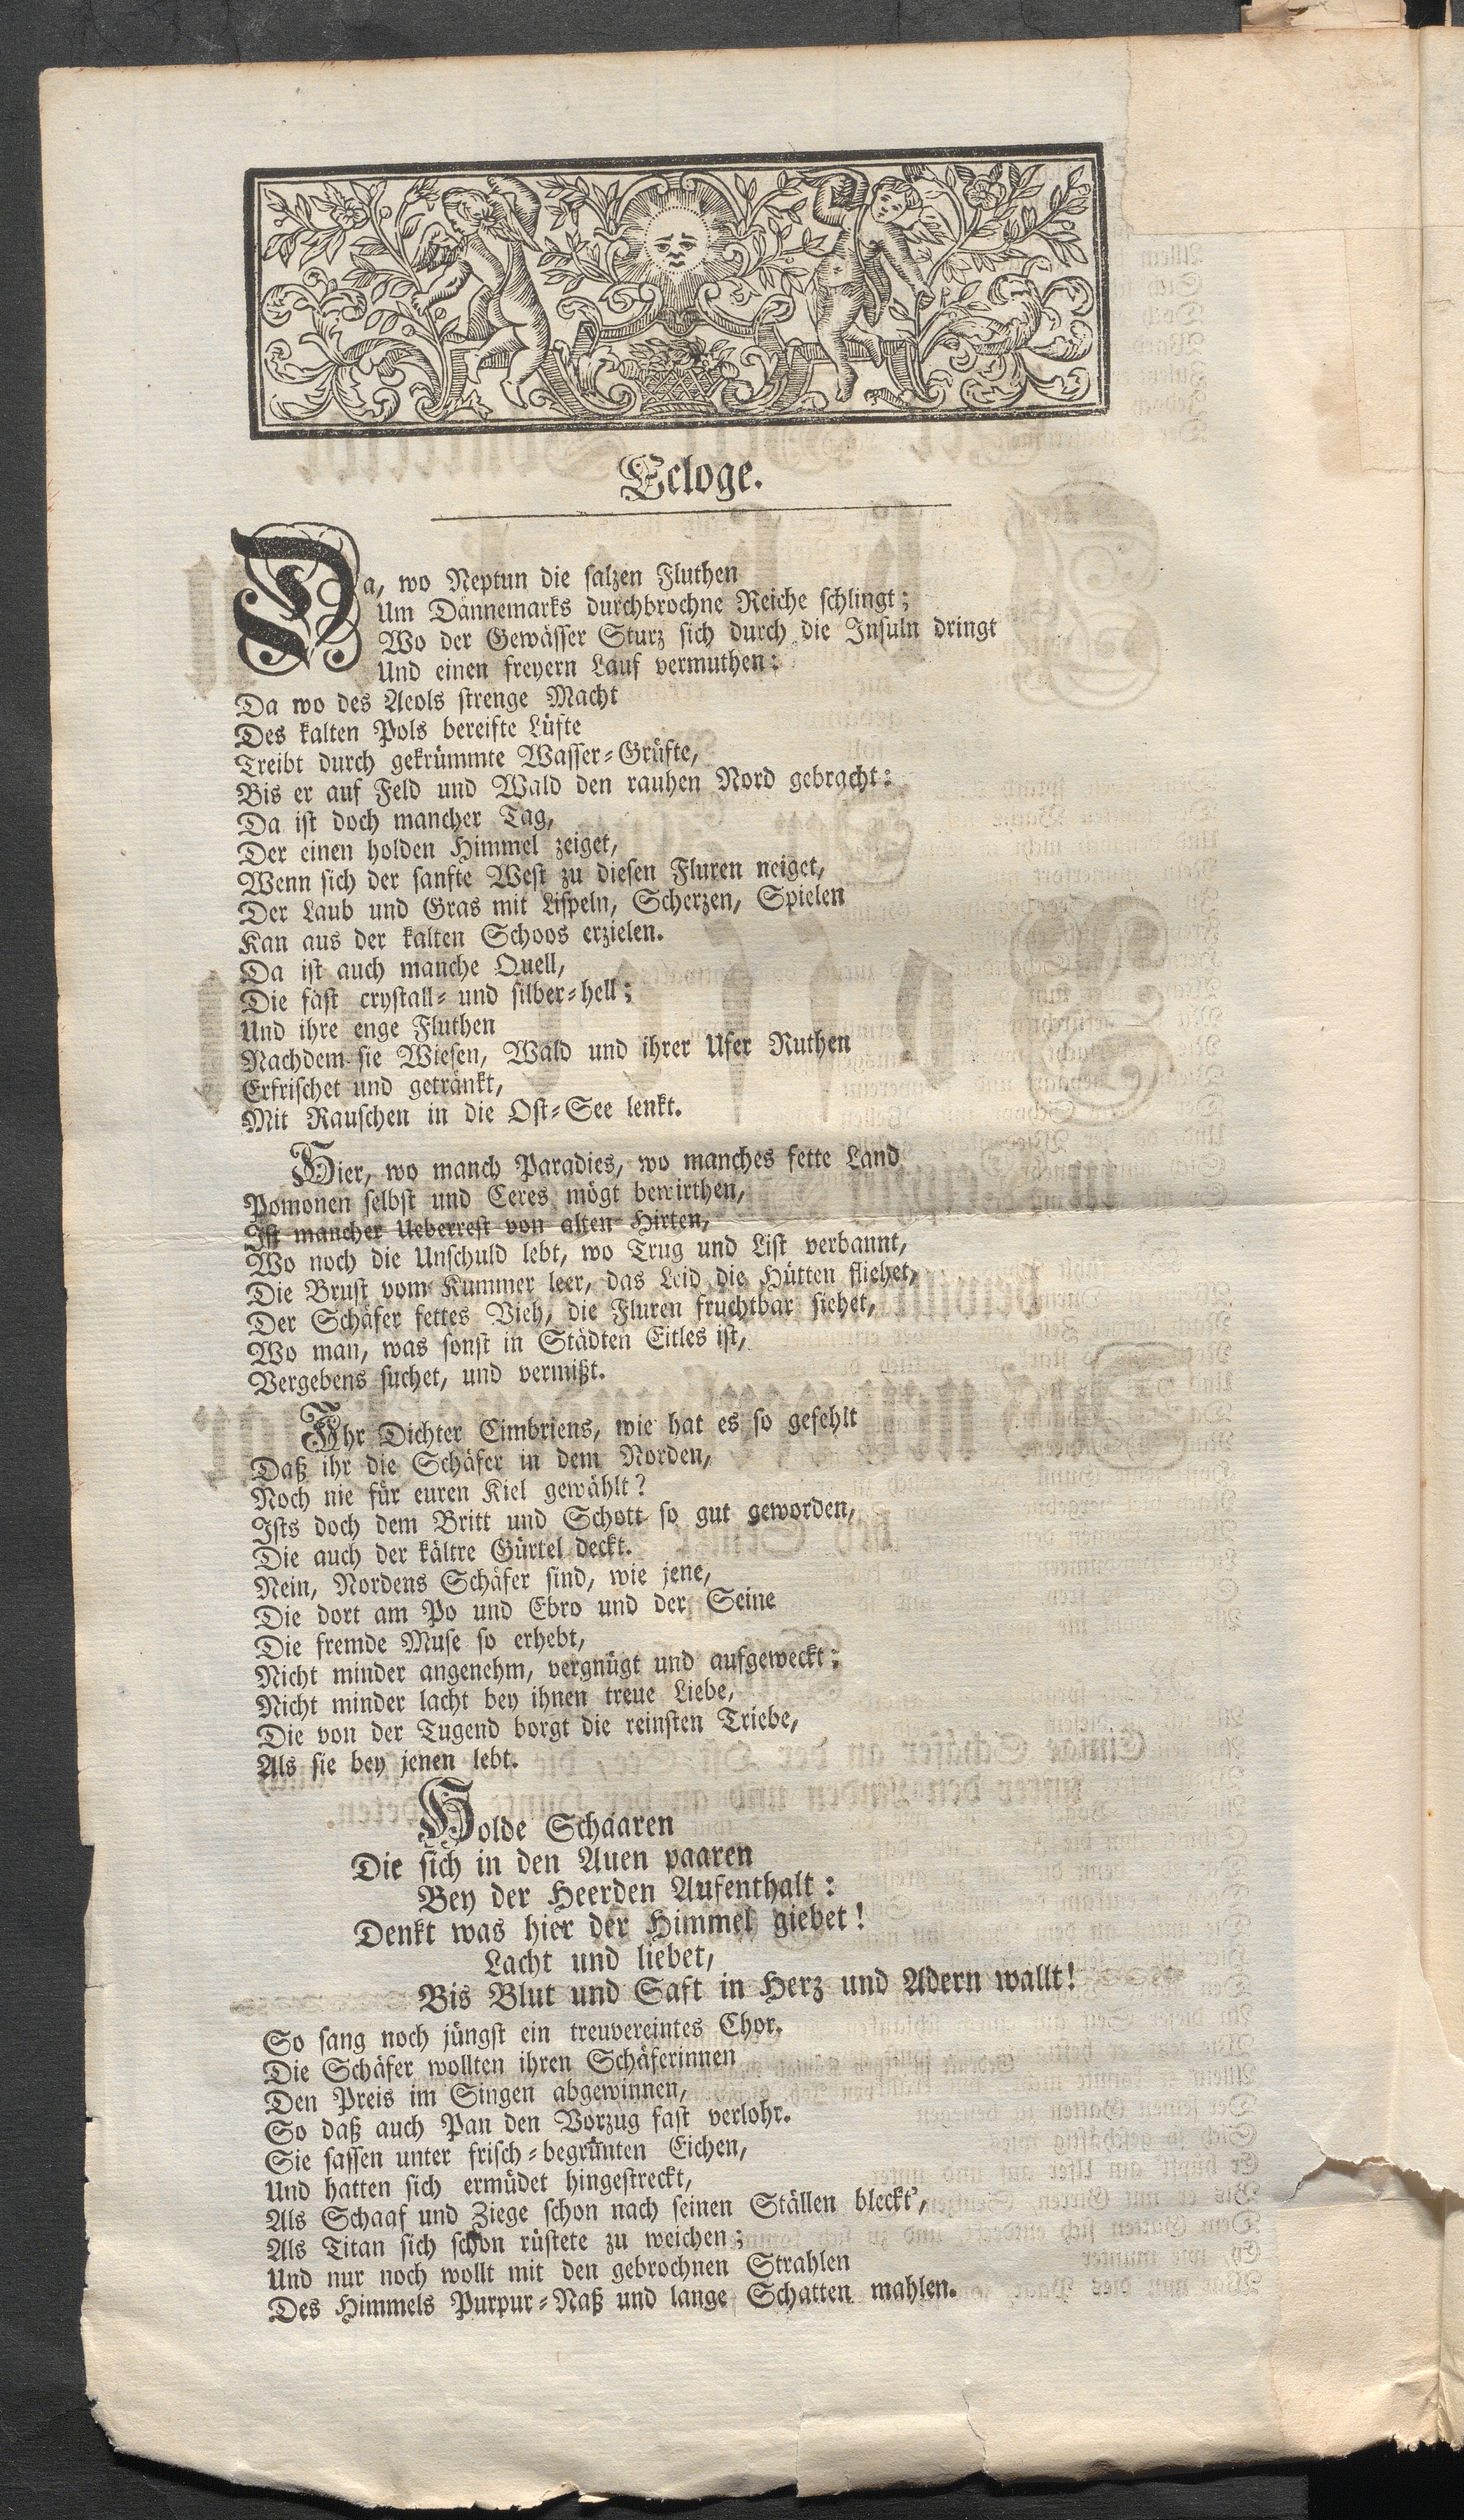 Ecloge.
Da, wo Neptun die salzen Fluthen
Um Dännemarks durchbrochne Reiche schlingt;
Wo der Gewässer Sturz sich durch die Insuln dringt
Und einen freyern Lauf vermuthen:
Da wo des Aeols strenge Macht
Des kalten Pols bereifte Lüfte
Treibt durch gekrümmte Wasser-Grüfte,
Bis er auf Feld und Wald den rauhen Nord gebracht:
Da ist doch mancher Tag,
Der einen holden Himmel zeiget,
Wenn sich der sanfte West zu diesen Fluren neiget,
Der Laub und Gras mit Lispeln, Scherzen, Spielen
Kan aus der kalten Schoos erzielen.
Da ist auch manche Quell,
Die fast crystall- und silber-hell;
Und ihre enge Fluthen
Nachdem sie Wiesen, Wald und ihrer Ufer Ruthen
Erfrischet und getränkt,
Mit Rauschen in die Ost-See lenkt.
Hier, wo manch Paradies, wo manches fette Land
Pomonen selbst und Ceres mögt bewirthen,
Ist mancher Ueberrest von alten Hirten,
Wo noch die Unschuld lebt, wo Trug und List verbannt,
Die Brust vom Kummer leer, das Leid die Hütten fliehet,
Der Schäfer fettes Vieh, die Fluren fruchtbar siehet,
Wo man, was sonst in Städten Eitles ist,
Vergebens suchet, und vermißt.
Ihr Dichter Cimbriens, wie hat es so gefehlt
Daß ihr die Schäfer in dem Norden,
Noch nie für euren Kiel gewählt?
Ists doch dem Britt und Schott so gut geworden,
Die auch der kältre Gürtel deckt.
Nein, Nordens Schäfer sind, wie jene,
Die dort am Po und Ebro und der Seine
Die fremde Muse so erhebt,
Nicht minder angenehm, vergnügt und aufgeweckt:
Nicht minder lacht bey ihnen treue Liebe,
Die von der Tugend borgt die reinsten Triebe,
Als sie bey jenen lebt.
Holde Schaaren
Die sich in den Auen paaren
Bey der Heerden Aufenthalt:
Denkt was hier der Himmel giebet!
Lacht und liebet,
Bis Blut und Saft in Herz und Adern wallt!
So sang noch jüngst ein treuvereintes Chor.
Die Schäfer wollten ihren Schäferinnen
Den Preis im Singen abgewinnen,
So daß auch Pan den Vorzug fast verlohr.
Sie sassen unter frisch-begrünten Eichen,
Und hatten sich ermüdet hingestreckt,
Als Schaaf und Ziege schon nach seinen Ställen bleckt',
Als Titan sich schon rüstete zu weichen;
Und nur noch wollt mit den gebrochnen Strahlen
Des Himmels Purpur-Naß und lange Schatten mahlen.